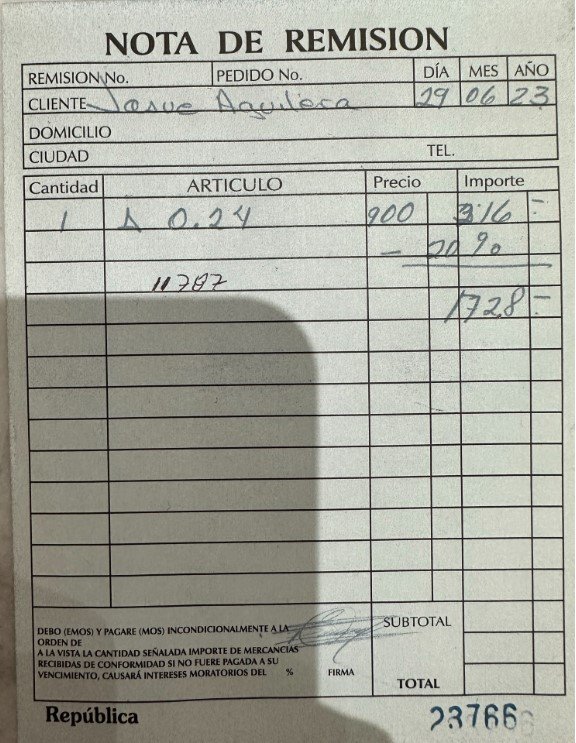 NOTA DE REMISION
REMISION No. PEDIDO No. DÍA MES AÑO
CLIENTE Josue Aguilera 29 06 23
DOMICILIO
CIUDAD TEL.
Cantidad ARTICULO Precio Importe
1 0.24 900 -
- 20 %
11787
1728 -
DEBO (EMOS) Y PAGARE (MOS) INCONDICIONALMENTE A LA
ORDEN DE
A LA VISTA LA CANTIDAD SEÑALADA IMPORTE DE MERCANCIAS
RECIBIDAS DE CONFORMIDAD SI NO FUERE PAGADA A SU
VENCIMIENTO, CAUSARÁ INTERESES MORATORIOS DEL % FIRMA
SUBTOTAL
TOTAL
República 23766